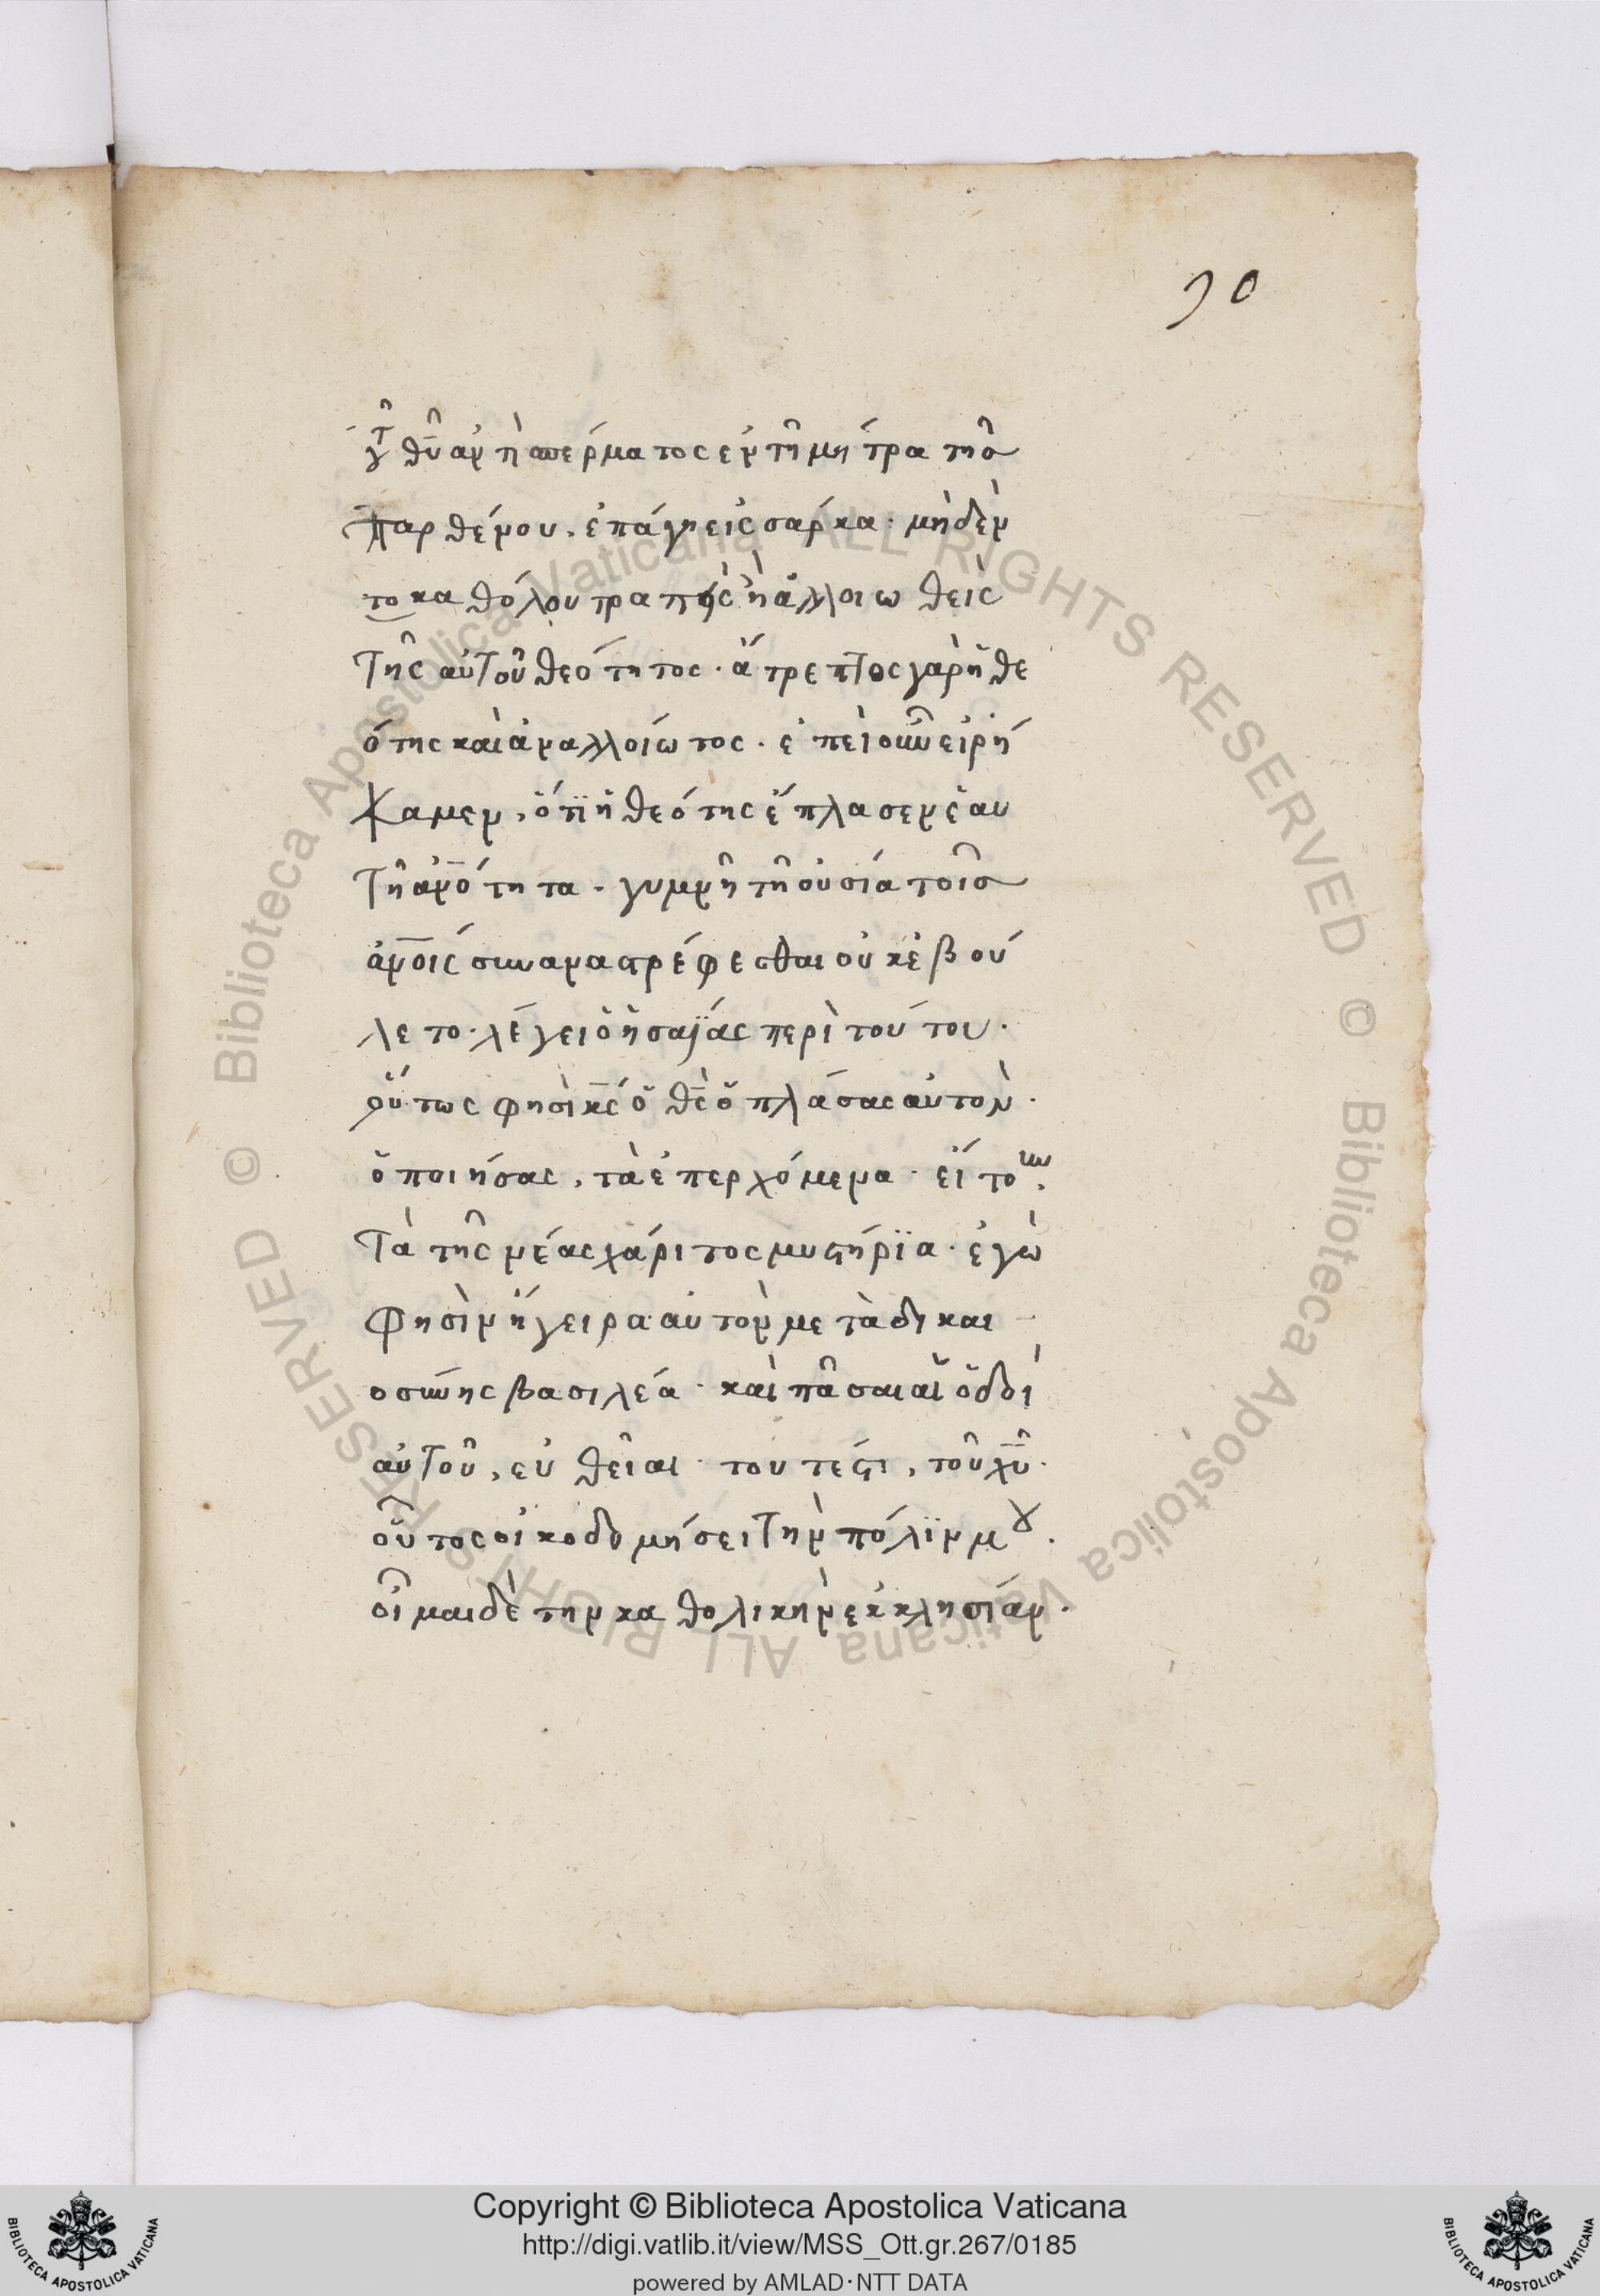 90
θῦ ἀντὶ σπέρματος ἐν τῆ μήτρα τῆσ
παρθένου, ἐπάγη εἰς σάρκα· μηδὲν
το καθόλου τραπῆς ἢ ἀλλοιωθεὶς
τῆς αὐτοῦ θεότητος· ἄτρεπτος γὰρ ἡ θε
ότης καὶ ἀναλλοίωτος· ἐπεὶ οῦν εἰρή
καμεν, ὅτϊ ἡ θεότης ἔπλασεν ἑαυ
τῆ ἀν̅ότητα· γυμνῆ τῆ οὐσία τοῖσ
ἀν̅οις συναναστρέφεσθαι οὐκ ἐβού
λετο· λέγει ὁ ἡσαΐας περὶ τούτου·
οὕτως φησὶ κ̅ς ὁ θ̅ς ὁ πλάσας αὐτον·
ὁ ποιήσας, τὰ ἐπερχόμενα· εἴτουν,
Τὰ τῆς νέας χάριτος μυστήρϊα· ἐγὼ
φησὶν ἤγειρα αὐτὸν μετὰ δικαι
οσύνης βασιλέα· καὶ πᾶσαι αἱ ὁδοὶ
αὐτοῦ, εὐθεῖαι· τουτέστι, τοῦ χ̅υ̅·
οὗτος οἰκοδομήσει τὴν πόλϊν μου.
οἶμαι δὲ την καθολικὴν ἐκκλησίαν.
Copyright © Biblioteca Apostolica Vaticana
http://digi.vatlib.it/view/MSS_Ott.gr.267/0185
powered by AMLAD·NTT DATA
BIBLIOTECA APOSTOLICA VATICANA
BIBLIOTECA APOSTOLICA VATICANA
© Biblioteca Apostolica Vaticana ALL RIGHTS RESERVED
© Biblioteca Apostolica Vaticana ALL RIGHTS RESERVED